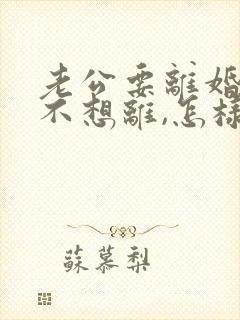 老公要離婚
不想離,怎樣
蘇慕梨